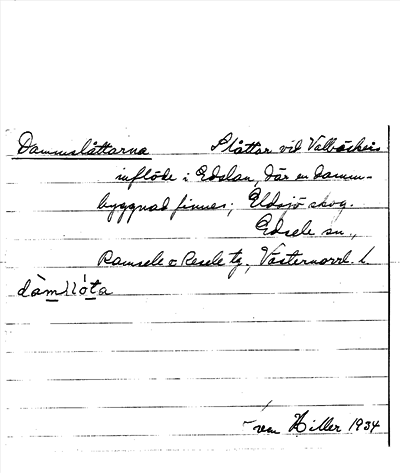 Dammslåttarna Slåttar vid Vallbäckens
inflöde i Edslan, där en damm-
byggnad finnes; Eldsjö skog.
Edsele sn.,
Ramsele o Resele tg, Västernorrl. l.
dàmllóta
Hiller 1934